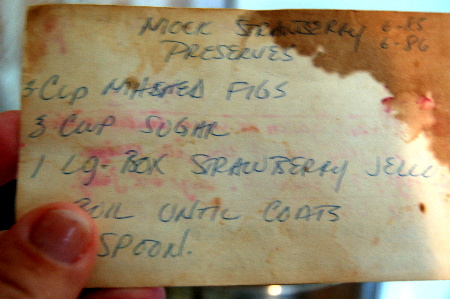 MOCK STRAWBERRY 6-85
PRESERVES 6-86
3 CUP MASHED FIGS
3 CUP SUGAR
1 LG. BOX STRAWBERRY JELLO
BOIL UNTIL COATS
SPOON.